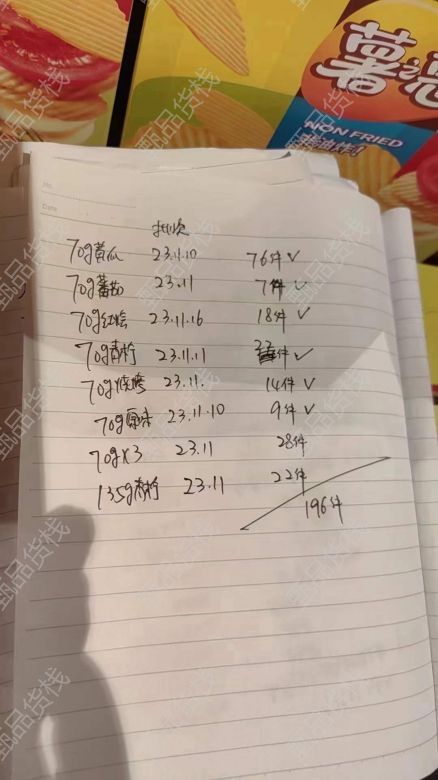 薯之恋
NON FRIED
非油炸
No.
Date
批次
70g黄瓜 23.11.10 76件 ✓
70g蕃茄 23.11 7件 ✓
70g红烩 23.11.16 18件 ✓
70g青柠 23.11.11 22件 ✓
70g烧烤 23.11. 14件 ✓
70g原味 23.11.10 9件 ✓
70g×3 23.11 28件
135g青柠 23.11 22件
196件
甄品货栈